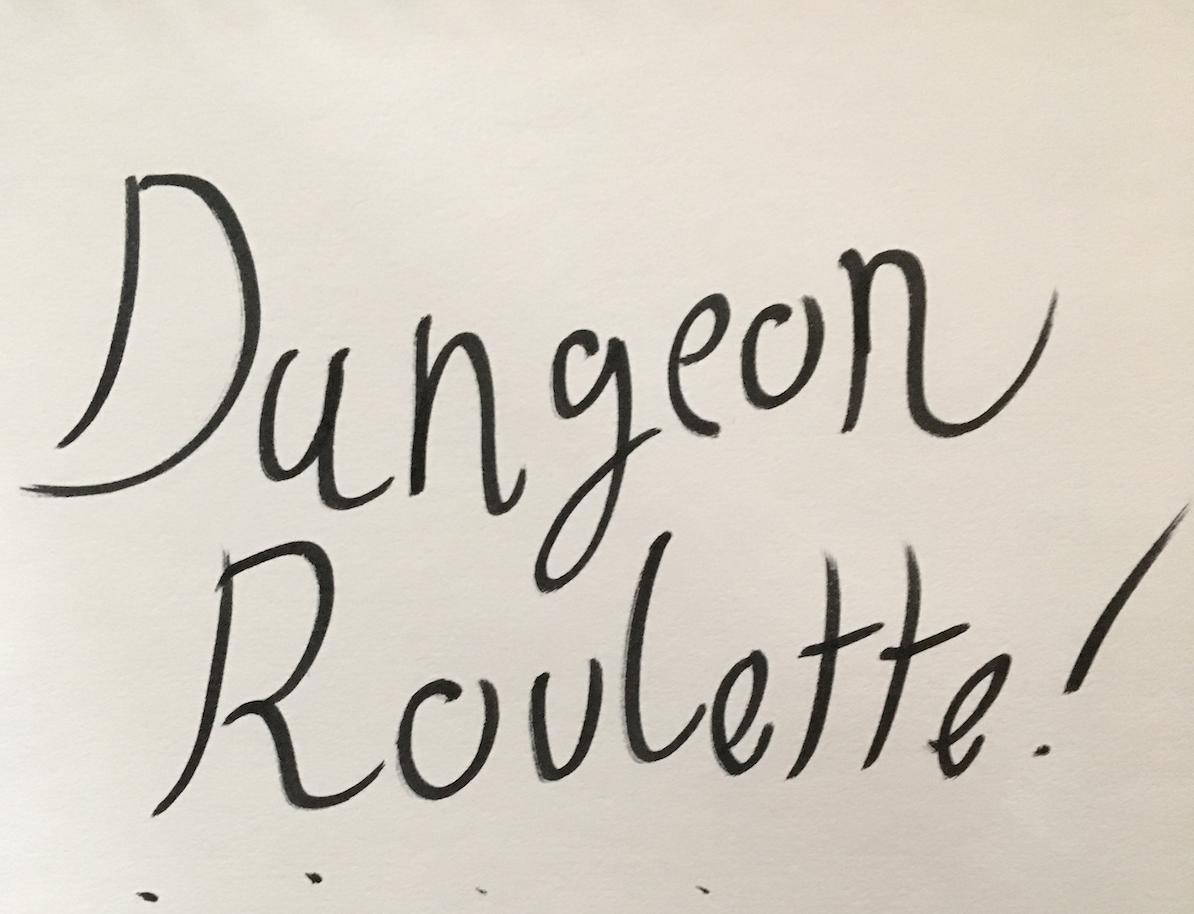 Dungeon
Roulette!